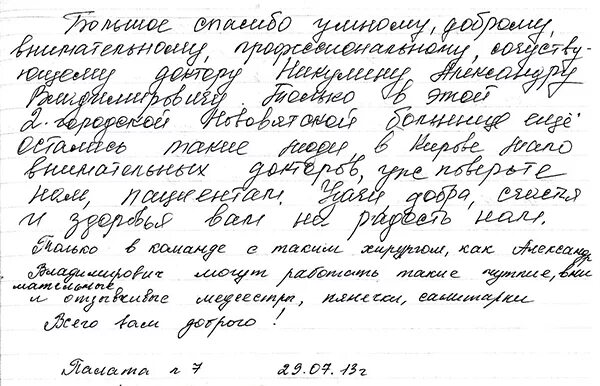 Большое спасибо умному, доброму,
внимательному, профессиональному, сочувству-
ющему доктору Никулину Александру
Владимировичу. Только в этой
2-городской Нововятской больнице ещё
остались такие люди, в Кирове мало
внимательных докторов, уж поверьте
нам, пациентам. Удачи, добра, счастья
и здоровья вам на радость нам.
Только в команде с таким хирургом, как Александр
Владимирович могут работать такие чуткие, вни
мательные
и отзывчивые медсестры, нянечки, санитарки
Всего вам доброго!
Палата № 7 29.07.13г